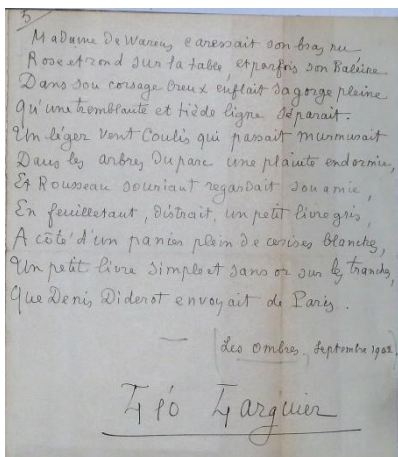 5
Madame de Warens caressait son bras nu
Rose et rond sur la table, et parfois son haleine
Dans son corsage creux enflait sa gorge pleine
Qu'une tremblante et tiède ligne séparait.
Un léger vent coulis qui passait murmurait
Dans les arbres du parc une plainte endormie,
Et Rousseau souriant regardait son amie,
En feuilletant, distrait, un petit livre gris,
A côté d'un panier plein de cerises blanches,
Un petit livre simple et sans or sur les tranches,
Que Denis Diderot envoyait de Paris.
(Les Ombres, Septembre 1902)
Léo Larguier